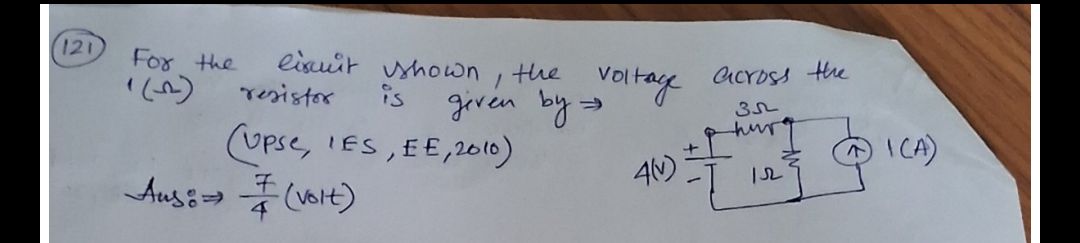 (121) For the circuit shown, the voltage across the
1(Ω) resistor is given by ⇒
(Upsc, IES, EE, 2010)
Ans:⇒ 7/4 (volt)
3Ω
4(V) + - 1Ω 1(A)